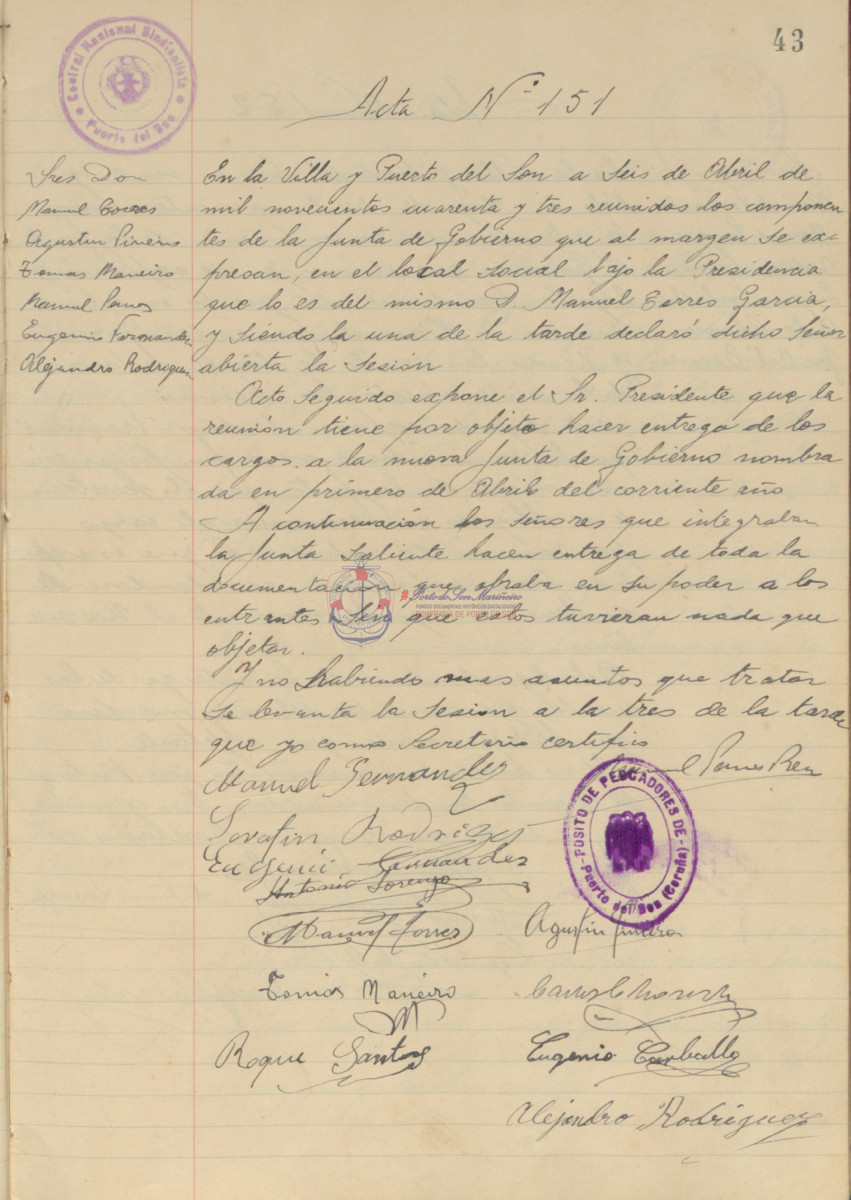 43
Central Nacional Sindicalista
Puerto del Son
Acta Nº 151
Sres Don
Manuel Torres
Agustin Piñeiro
Tomas Maneiro
Manuel
Eugenio Fernandez
Alejandro Rodriguez
En la Villa y Puerto del Son a Seis de Abril de
mil novecientos cuarenta y tres reunidos los componen
tes de la Junta de Gobierno que al margen se ex-
presan, en el local social bajo la Presidencia
que lo es del mismo D. Manuel Torres Garcia,
y siendo la una de la tarde declaró dicho Señor
abierta la Sesión
Acto Seguido expone el Sr. Presidente que la
reunión tiene por objeto hacer entrega de los
cargos. a la nueva Junta de Gobierno nombra
da en primero de Abril del corriente año
A continuación los señores que integraban
la Junta saliente hacen entrega de toda la
documentación que obraba en su poder a los
entrantes sin que estos tuvieran nada que
objetar.
Porto do Son Mariñeiro
FONDOS DOCUMENTAIS HISTÓRICOS DIXITALIZADOS
COFRADÍA DE PORTO DO SON
Y no habiendo mas asuntos que tratar
se levanta la sesion a la tres de la tarde
que yo como Secretario certifico
Manuel Fernandez
Serafin Rodriguez
Eugenio Fernandez
Antonio Lorenzo
POSITO DE PESCADORES DE
Puerto del Son (Coruña)
Manuel Torres
Agustin Piñeiro
Tomás Maneiro
Roque Santos
Eugenio Carballo
Alejandro Rodriguez